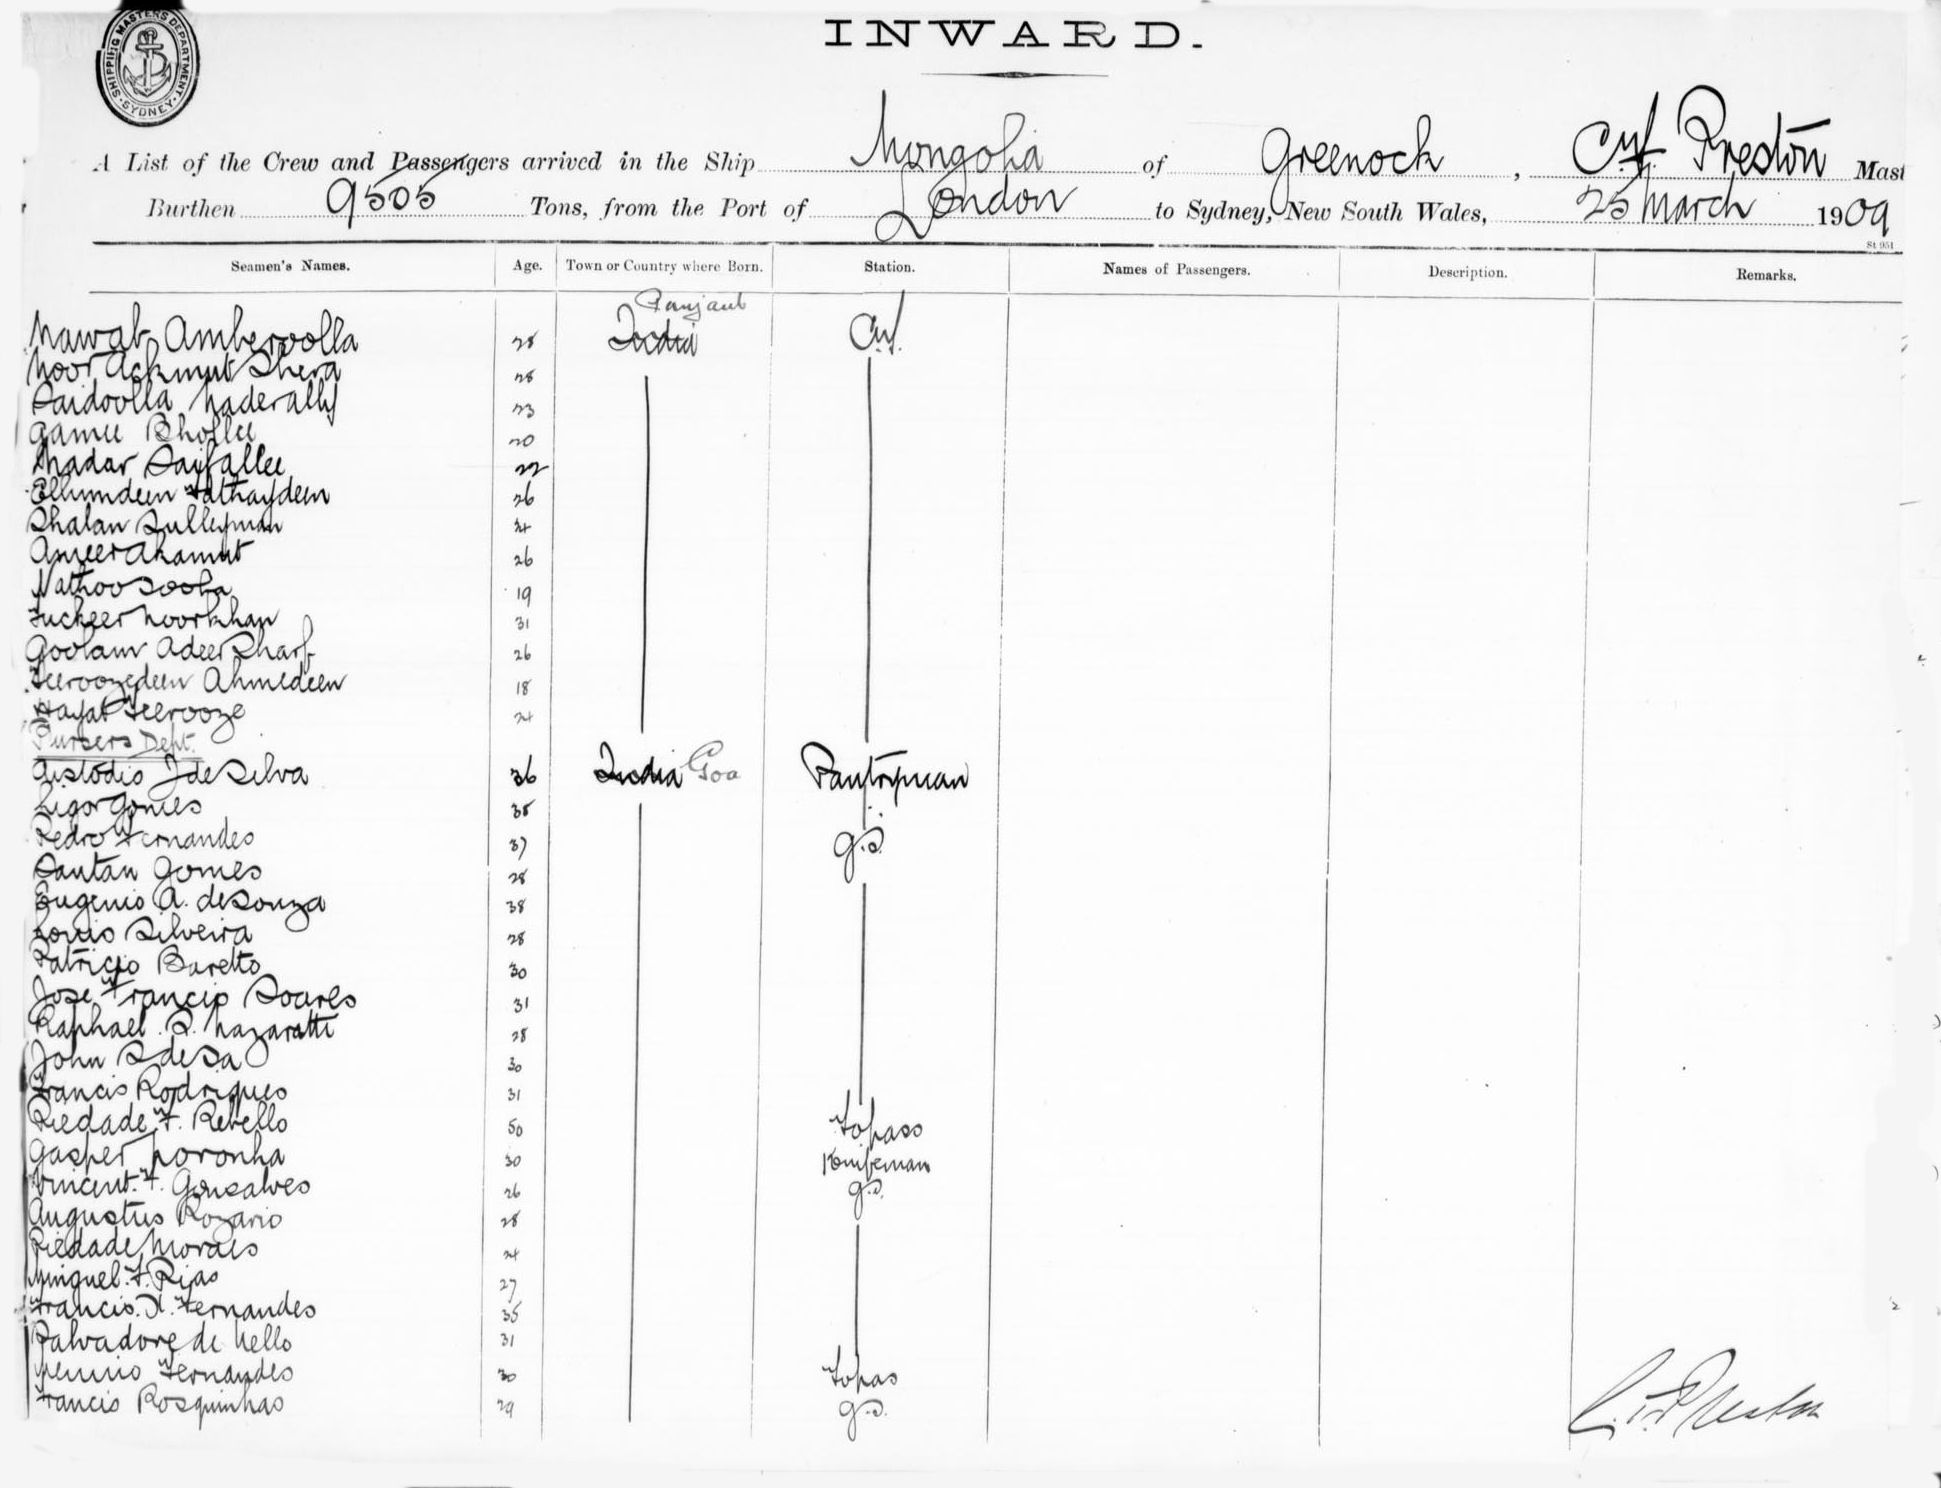 SHIPPING MASTERS DEPARTMENT
SYDNEY
INWARD.
A List of the Crew and Passengers arrived in the Ship Mongolia of Greenock, Preston Mast
Burthen 9505 Tons, from the Port of London to Sydney, New South Wales, 25 March 1909
St 951
Seamen's Names. Age. Town or Country where Born. Station. Names of Passengers. Description. Remarks.
Panjaub
Nawab Amberoolla 28 India
Noor Ackmut Shera 28
Saidoolla Naderally 23
Gamee Bhollee 20
Madar Saifallee 22
Ellumdeen Fathaydeen 26
Shalan Sulleyman 24
Ameer Ahamut 26
Nathoo Sooba 19
Fuckeer Noorkhan 31
Goolam Adeer Sharf 26
Feeroozedeen Ahmedeen 18
Hayat Feerooze 24
Pursers Dept.
Custodio J de Silva 36 India Goa Pantryman
Ligor Gomes 38
Pedro Fernandes 37 G.S.
Santan Gomes 28
Eugenio A. de Souza 38
Louis Silveira 28
Patricio Baretto 30
Jose Francis Soares 31
Raphael S. Nazaratti 28
John S de Sa 30
Francis Rodrigues 31
Piedade F. Rebello 50 Topass
Gasper Noronha 30 Knifeman
Vincent F. Gonsalves 26 G.S.
Augustus Rozario 28
Piedade Moraes 24
Minguel F. Rias 27
Francis X. Fernandes 35
Salvadore de Mello 31
Fernandes 30 Topas
Francis Rosquinhas 29 G.S.
Preston